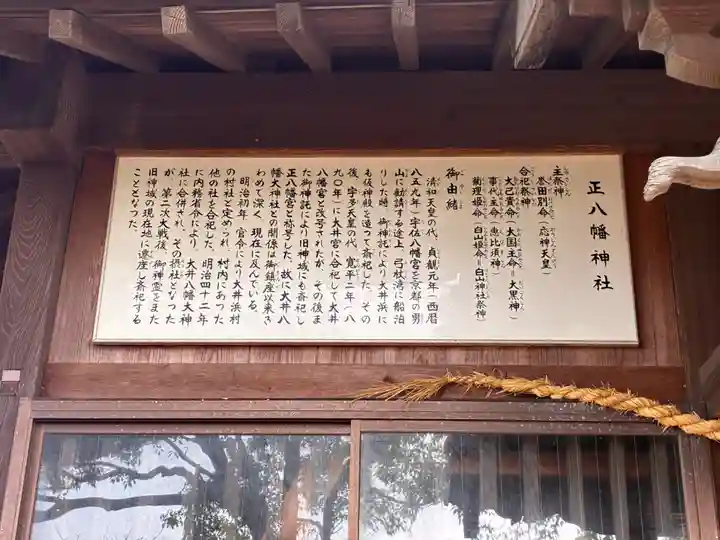 正八幡神社
主祭神
誉田別命(応神天皇)
合祀祭神
大己貴命(大国主命=大黒神)
事代主命(恵比須神)
菊理姫命(白山姫命=白山神社祭神)
御由緒
清和天皇の代、貞観元年(西暦
八五九年)宇佐八幡宮を京都の男
山に勧請する途上、弓杖湾に船泊
りした時、御神託により大井浜に
も仮神殿を造って斎祀した。その
後、宇多天皇の代、寛平二年(八
九〇年)に大井宮に合祀して大井
八幡宮と改号されたが、その後ま
た御神託により旧神域にも斎祀し
正八幡宮と称号した。故に大井八
幡大神社との関係は御鎮座以来き
わめて深く、現在に及んでいる。
明治初年、官令により大井浜村
の村社と定められ、村内にあった
他の社を合祀した。明治四十二年
に内務省令により、大井八幡大神
社に合併され、その摂社となった
が、第二次大戦後、御神霊をまた
旧神域の現在地に遷座し斎祀する
こととなった。